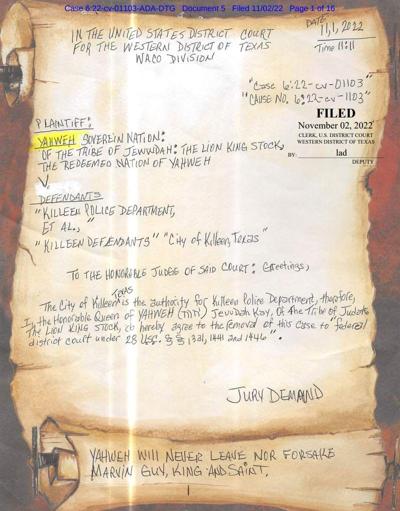 Case 6:22-cv-01103-ADA-DTG Document 5 Filed 11/02/22 Page 1 of 16
DATE
11,1,2022
Time 11:11
IN THE UNITED STATES DISTRICT COURT
FOR THE WESTERN DISTRICT OF TEXAS
WACO DIVISION
"Case 6:22-cv-01103"
"CAUSE NO. 6:22-cv-1103"
FILED
November 02, 2022
CLERK, U.S. DISTRICT COURT
WESTERN DISTRICT OF TEXAS
BY: lad
DEPUTY
PLAINTIFF:
YAHWEH SOVEREIN NATION:
OF THE TRIBE OF JEWUDAH: THE LION KING STOCK,
THE REDEEMED NATION OF YAHWEH
V.
DEFENDANTS
"KILLEEN POLICE DEPARTMENT,
ET AL.,"
"KILLEEN DEFENDANTS" "City of Killeen, Texas"
TO THE HONORABLE JUDGE OF SAID COURT: Greetings,
TEXAS
The City of Killeen is the authority for Killeen Police Department, therefore,
I, the Honorable Queen of YAHWEH Jewudah Kay, Of the Tribe of Judah
The LION KING STOCK, do hereby agree to the removal of this case to "federal
district court under 28 USC. § § 1331, 1441 and 1446".
JURY DEMAND
YAHWEH WILL NEVER LEAVE NOR FORSAKE
MARVIN GUY, KING AND SAINT.
1